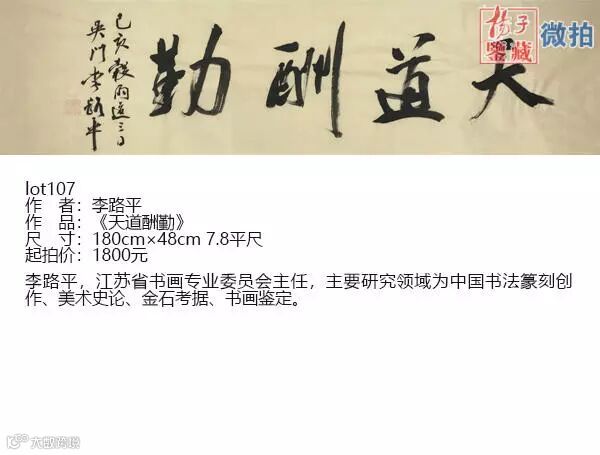 天道酬勤
己亥穀雨
吴门李路平
杨子
鉴藏
微拍
lot107
作 者：李路平
作 品：《天道酬勤》
尺 寸：180cm×48cm 7.8平尺
起拍价：1800元
李路平，江苏省书画专业委员会主任，主要研究领域为中国书法篆刻创
作、美术史论、金石考据、书画鉴定。